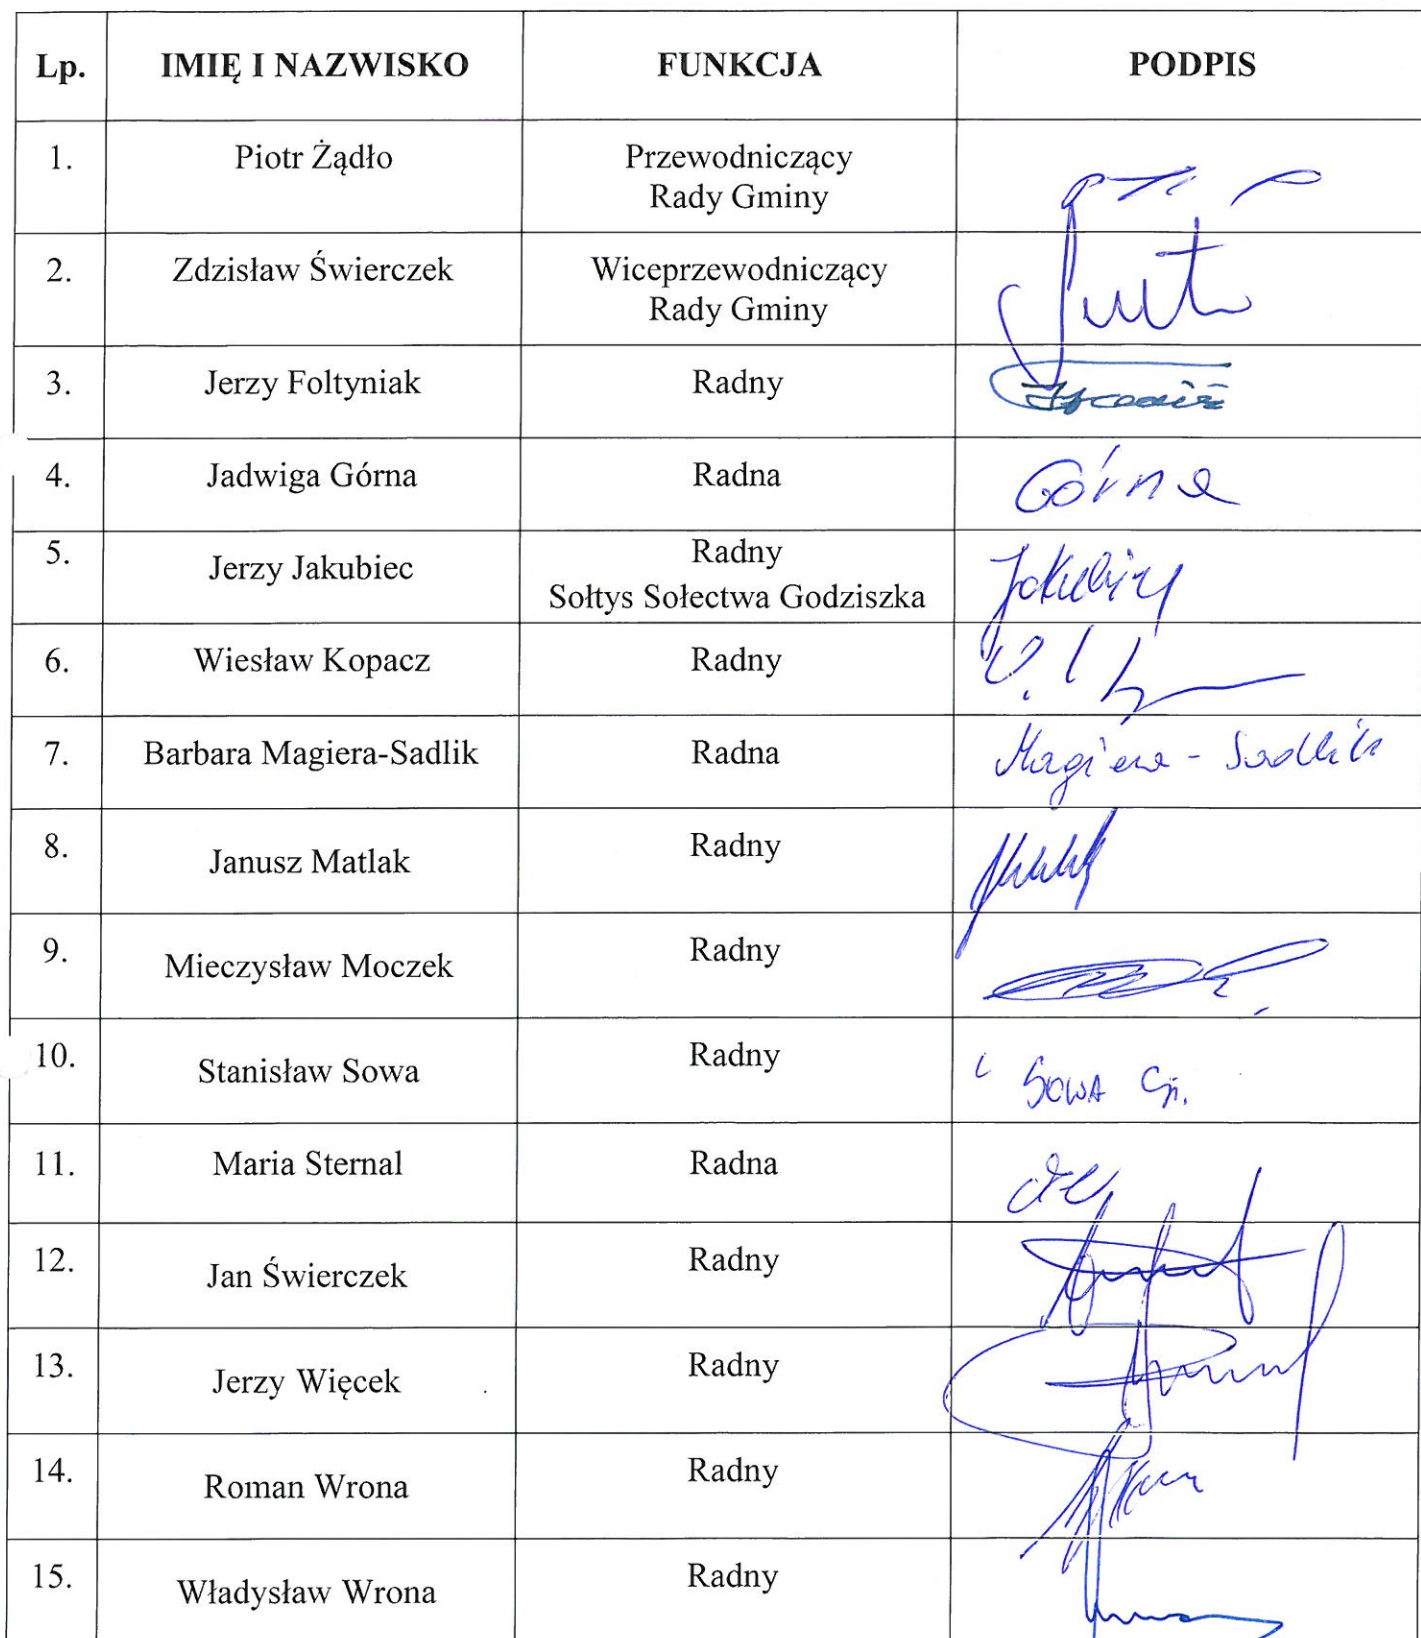 Lp. IMIĘ I NAZWISKO FUNKCJA PODPIS
1. Piotr Żądło Przewodniczący
Rady Gminy
2. Zdzisław Świerczek Wiceprzewodniczący
Rady Gminy
3. Jerzy Foltyniak Radny
4. Jadwiga Górna Radna Górna
5. Jerzy Jakubiec Radny
Sołtys Sołectwa Godziszka Jakubiec
6. Wiesław Kopacz Radny
7. Barbara Magiera-Sadlik Radna Magiera - Sadlik
8. Janusz Matlak Radny
9. Mieczysław Moczek Radny
10. Stanisław Sowa Radny Sowa St.
11. Maria Sternal Radna
12. Jan Świerczek Radny
13. Jerzy Więcek Radny
14. Roman Wrona Radny
15. Władysław Wrona Radny